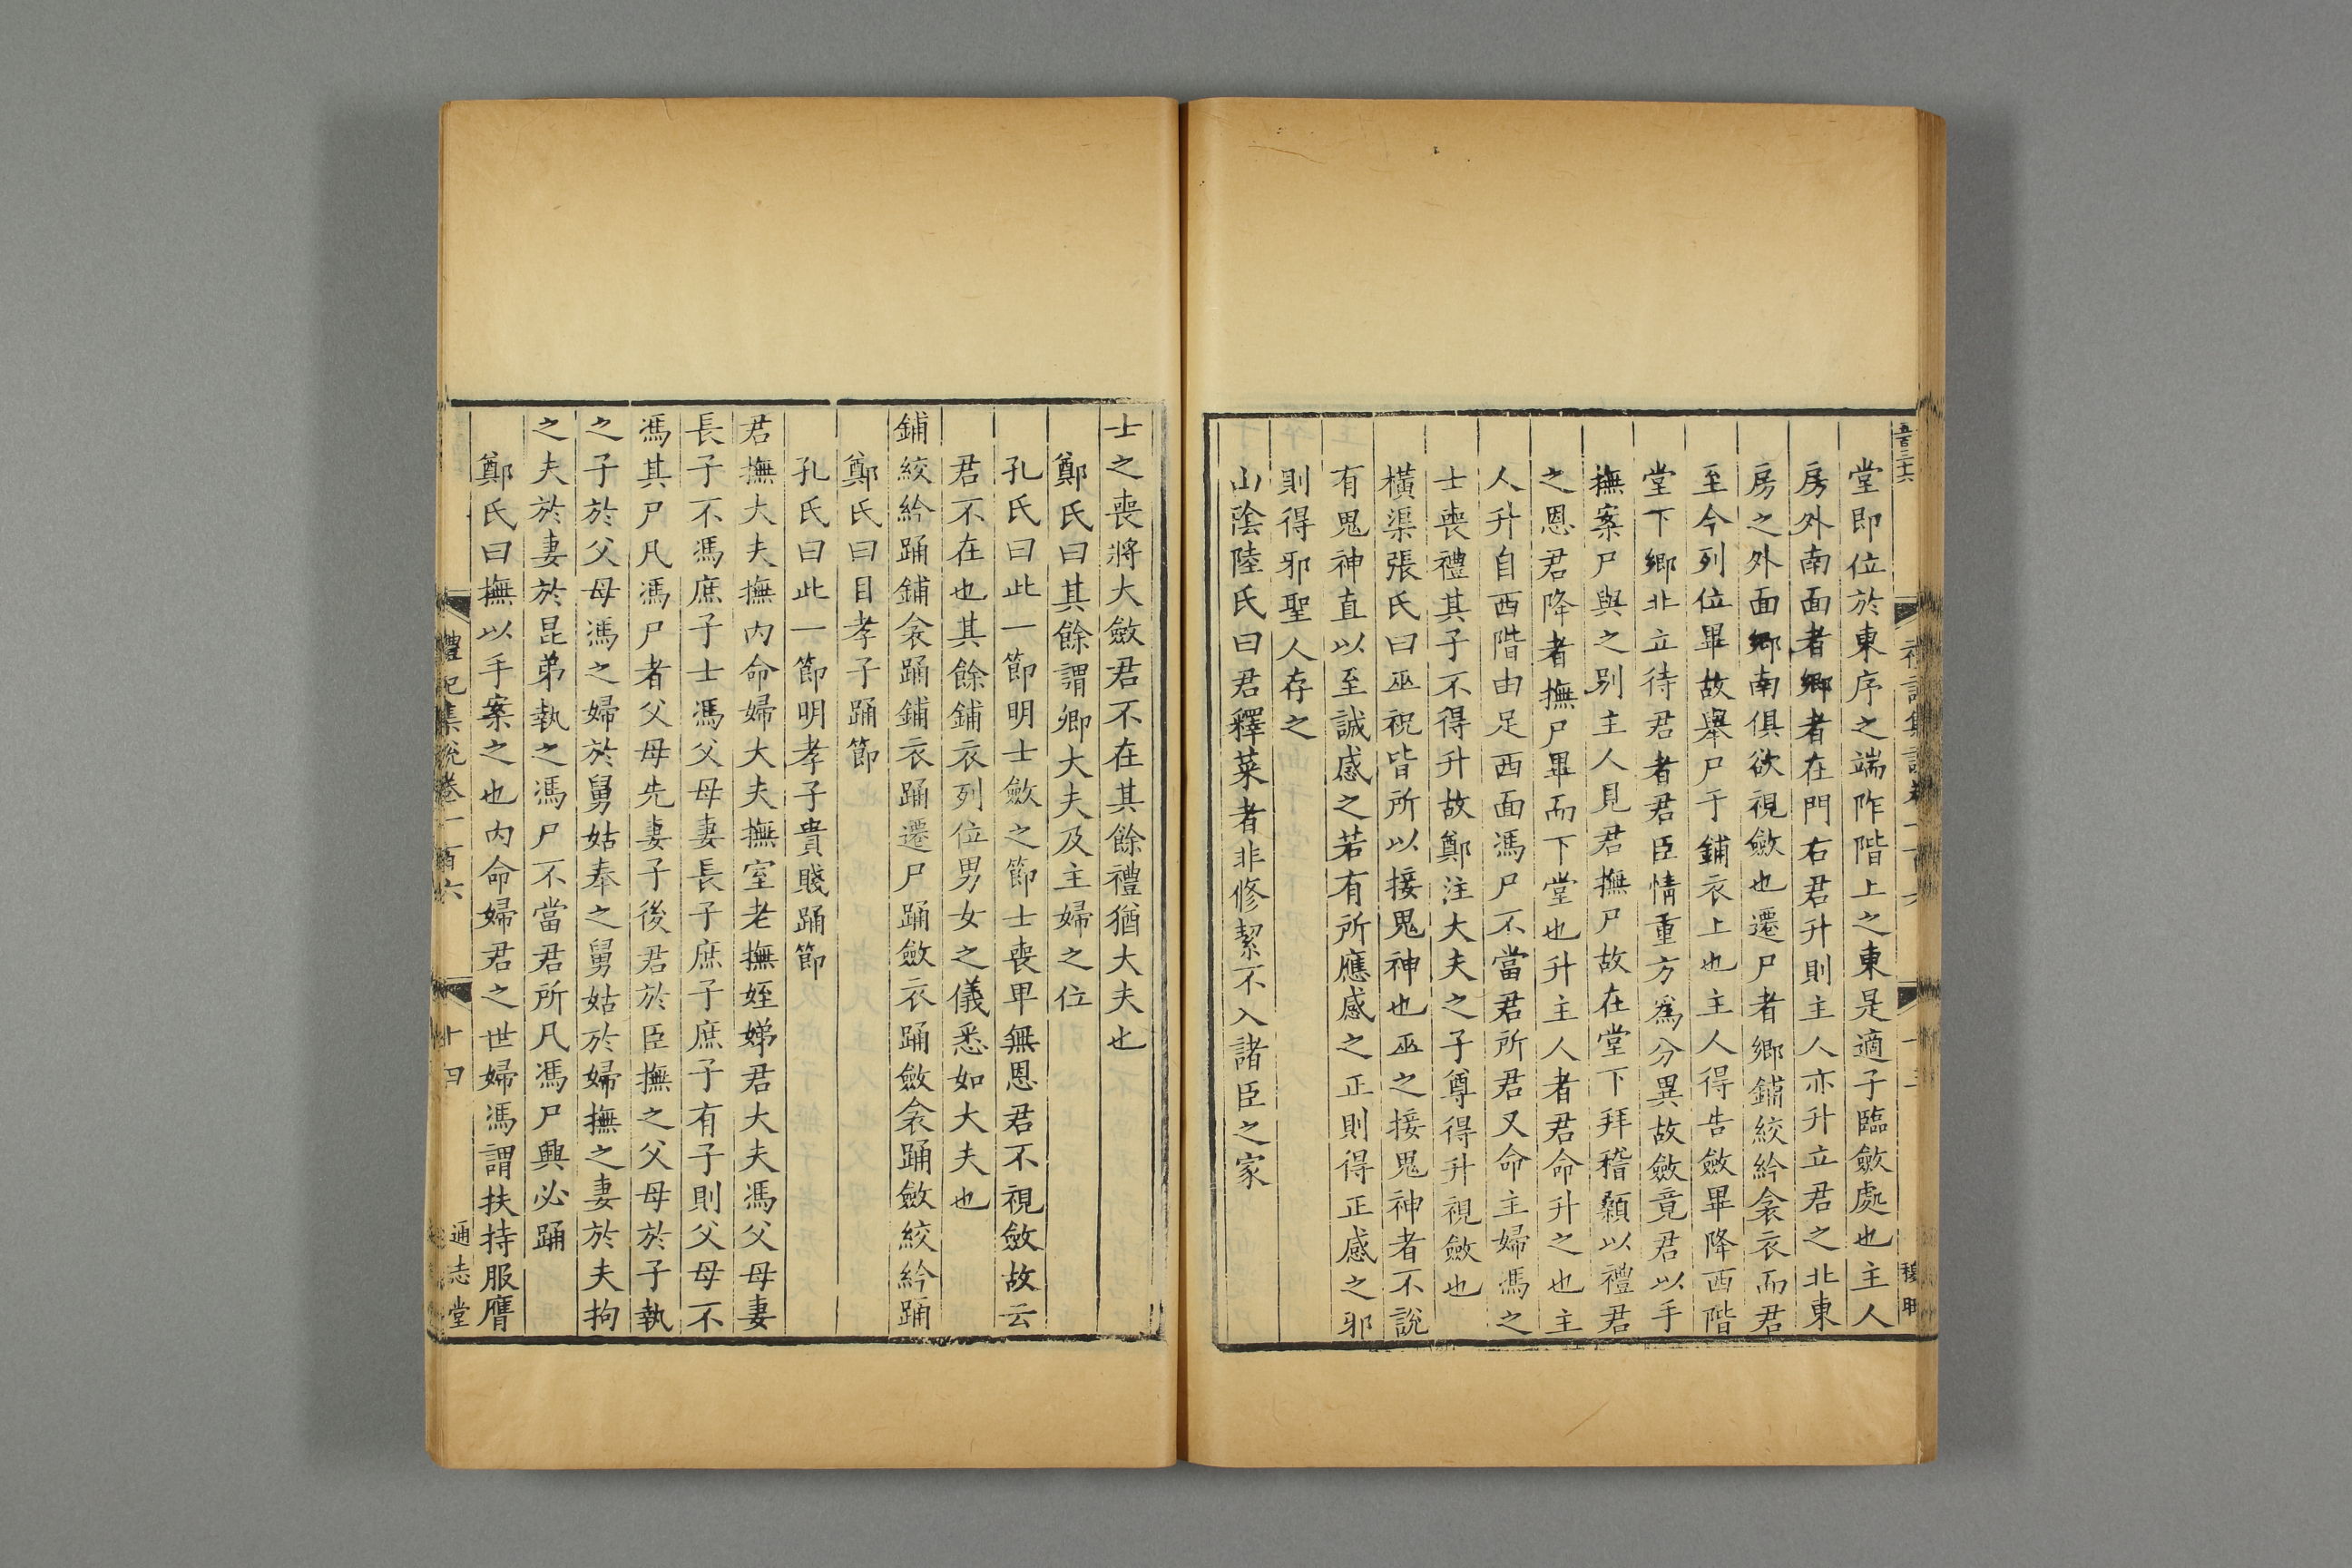 五百三十六
堂即位於東序之端阼階上之東是適子臨斂處也主人
房外南面者鄉者在門右君升則主人亦升立君之北東
房之外面鄉南俱欲視斂也遷尸者鄉鋪絞紟衾衣而君
至今列位畢故舉尸于鋪衣上也主人得告斂畢降西階
堂下鄉北立待君者君臣情重方為分異故斂竟君以手
撫案尸與之別主人見君撫尸故在堂下拜稽顙以禮君
之恩君降者撫尸畢而下堂也升主人者君命升之也主
人升自西階由足西面馮尸不當君所君又命主婦馮之
士喪禮其子不得升故鄭注大夫之子尊得升視斂也
橫渠張氏曰巫祝皆所以接鬼神也巫之接鬼神者不說
有鬼神直以至誠感之若有所應感之正則得正感之邪
則得邪聖人存之
山陰陸氏曰君釋菜者非修絜不入諸臣之家
士之喪將大斂君不在其餘禮猶大夫也
鄭氏曰其餘謂卿大夫及主婦之位
孔氏曰此一節明士斂之節士喪卑無恩君不視斂故云
君不在也其餘鋪衣列位男女之儀悉如大夫也
鋪絞紟踊鋪衾踊鋪衣踊遷尸踊斂衣踊斂衾踊斂絞紟踊
鄭氏曰目孝子踊節
孔氏曰此一節明孝子貴賤踊節
君撫大夫撫內命婦大夫撫室老撫姪娣君大夫馮父母妻
長子不馮庶子士馮父母妻長子庶子庶子有子則父母不
馮其尸凡馮尸者父母先妻子後君於臣撫之父母於子執
之子於父母馮之婦於舅姑奉之舅姑於婦撫之妻於夫拘
之夫於妻於昆弟執之馮尸不當君所凡馮尸興必踊
鄭氏曰撫以手案之也內命婦君之世婦馮謂扶持服膺
禮記集說卷一百六 十四 通志堂